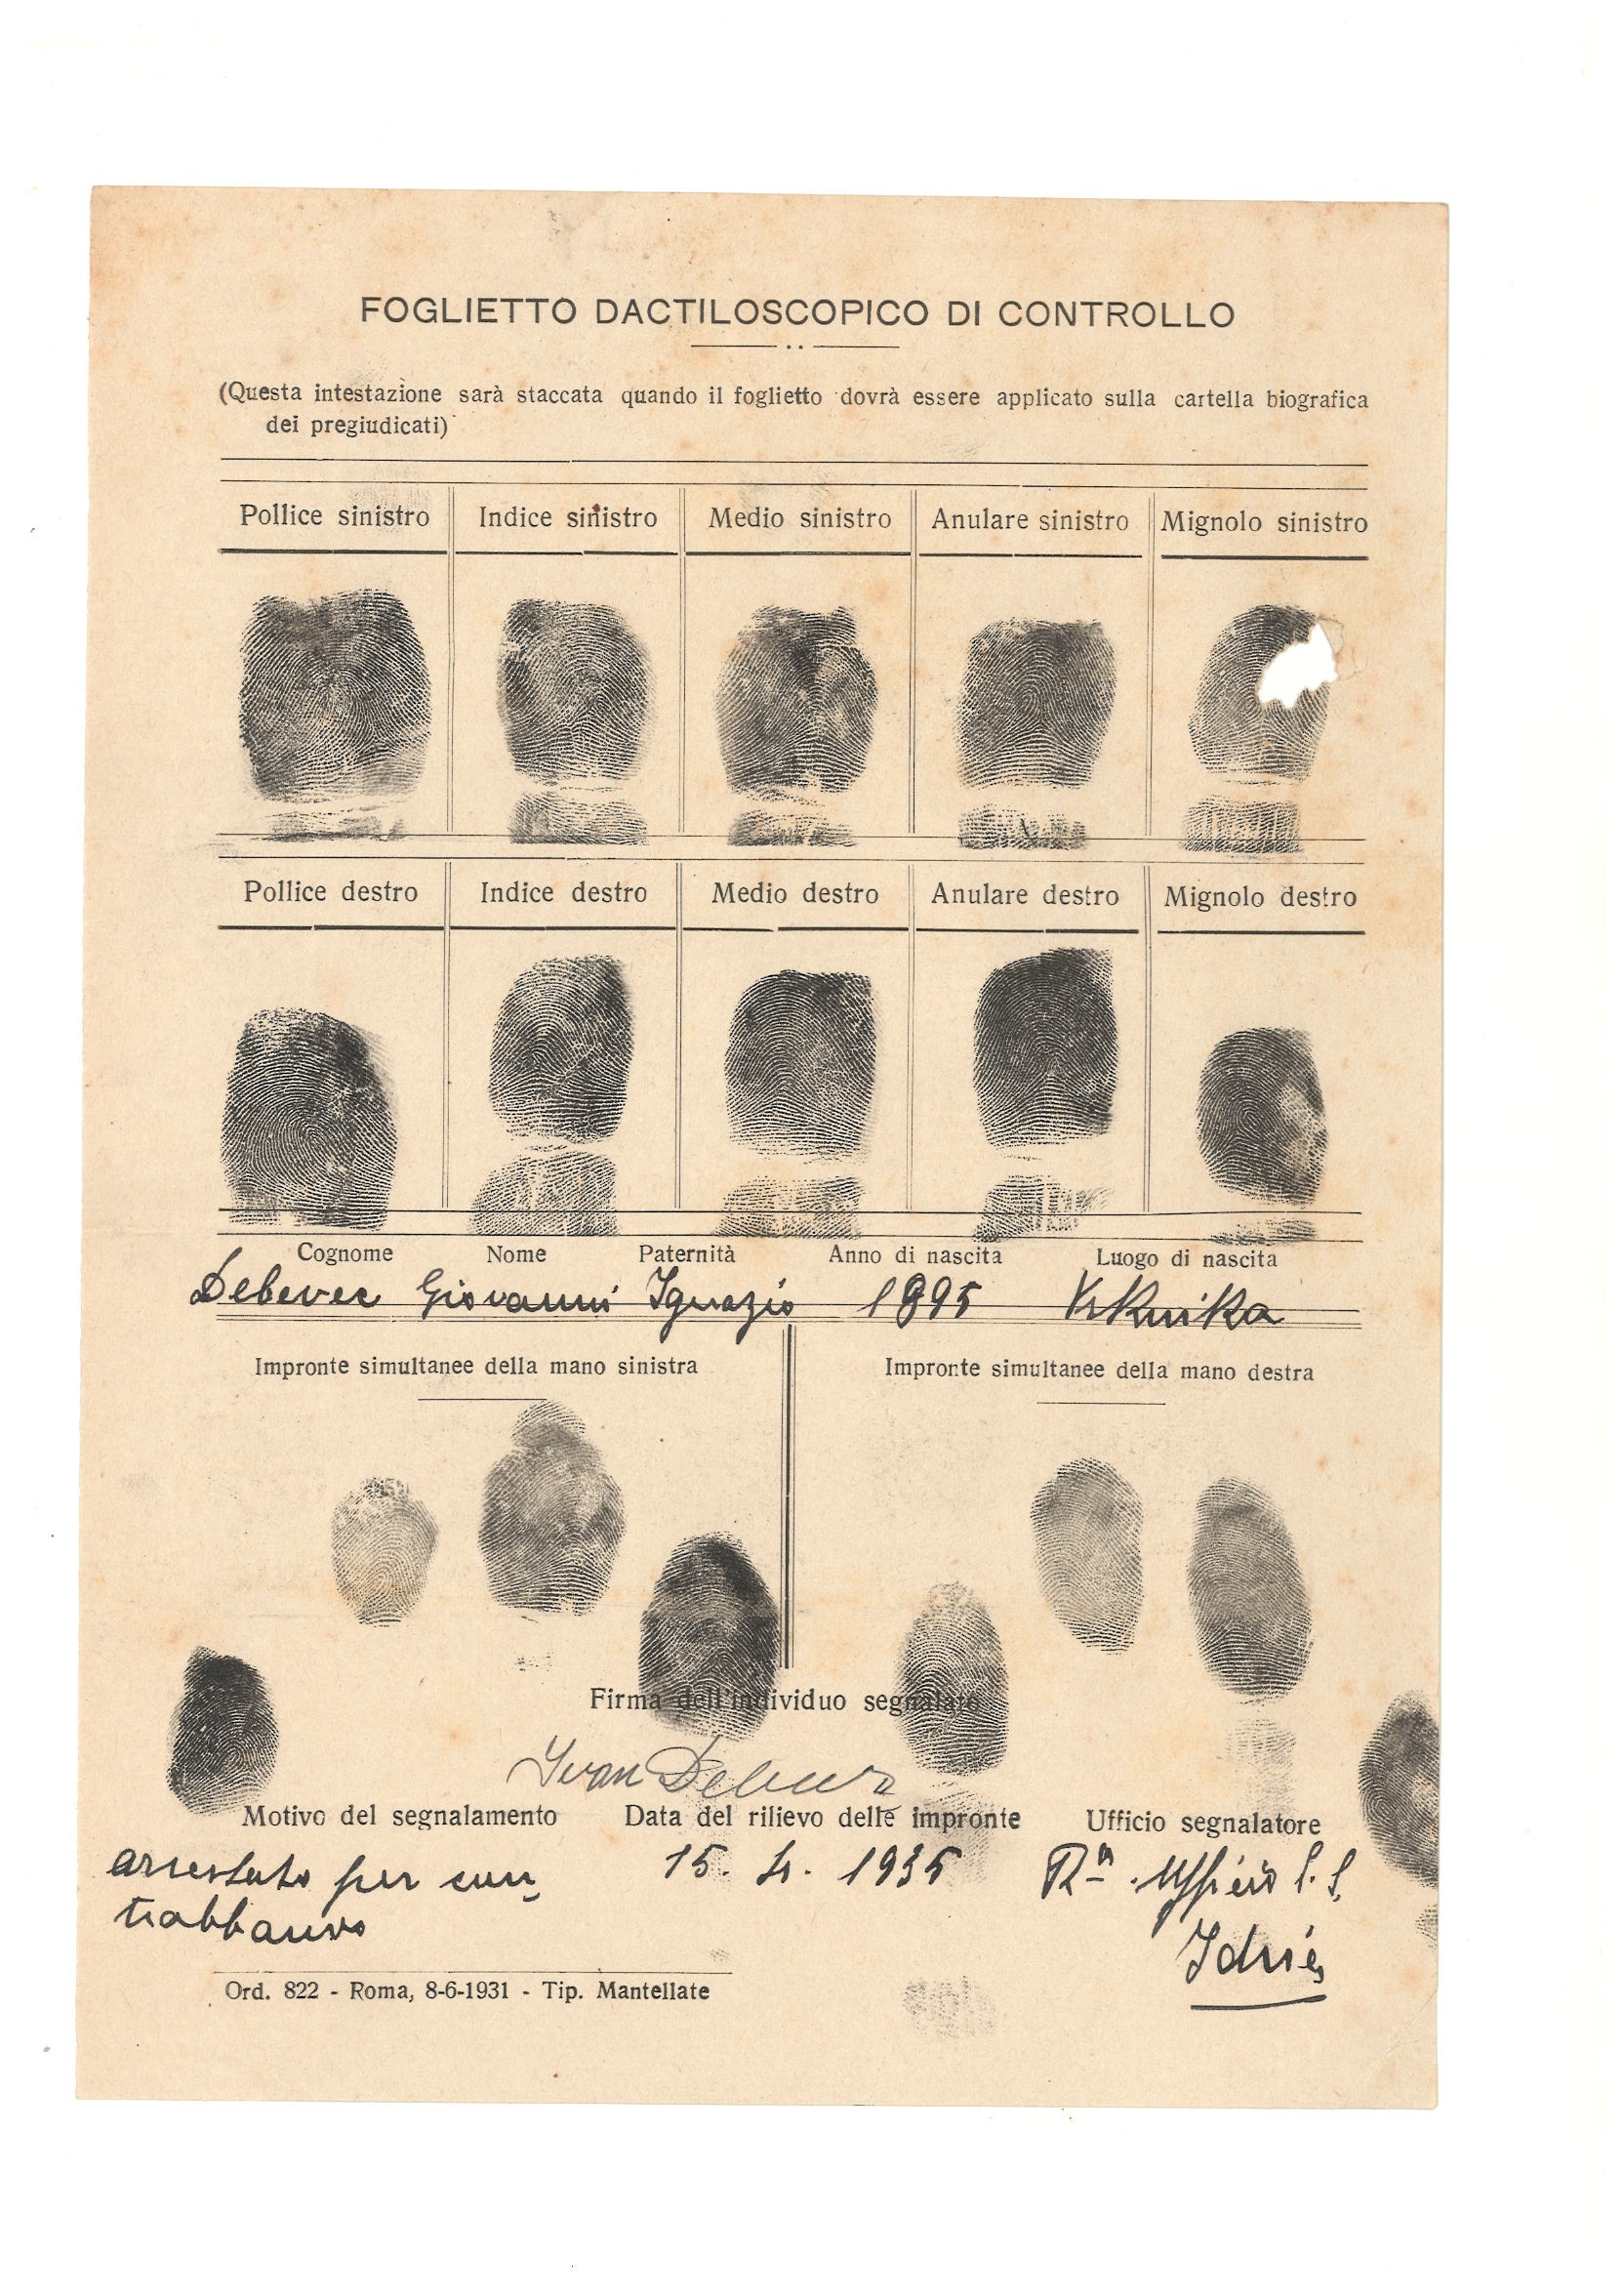 FOGLIETTO DACTILOSCOPICO DI CONTROLLO
(Questa intestazione sarà staccata quando il foglietto dovrà essere applicato sulla cartella biografica
dei pregiudicati)
Pollice sinistro Indice sinistro Medio sinistro Anulare sinistro Mignolo sinistro
Pollice destro Indice destro Medio destro Anulare destro Mignolo destro
Cognome Nome Paternità Anno di nascita Luogo di nascita
Debevec Giovanni Ignazio 1895
Impronte simultanee della mano sinistra Impronte simultanee della mano destra
Firma dell'individuo segnalato
Ivan Debevec
Motivo del segnalamento Data del rilievo delle impronte Ufficio segnalatore
arrestato per con- 15. 4. 1935 Ufficio
trabbando
Idria
Ord. 822 - Roma, 8-6-1931 - Tip. Mantellate